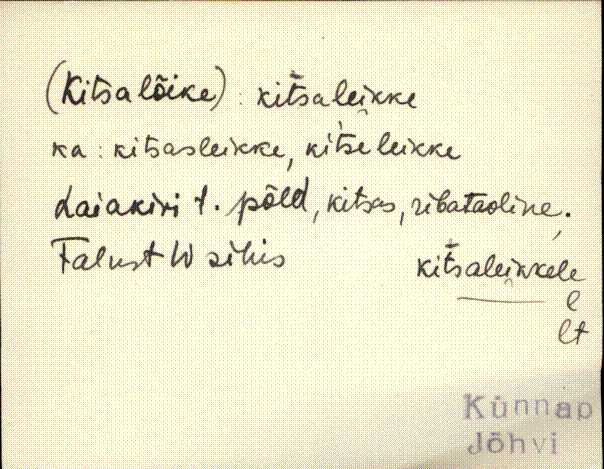 (Kitsalõike) : kitsaleikke
ka : kitsasleikke, kitseleikke
Laiakiri t. põld, kitsas, ribataoline.
Talust W sihis kitsaleikkele
l
lt
Künnap
Jõhvi